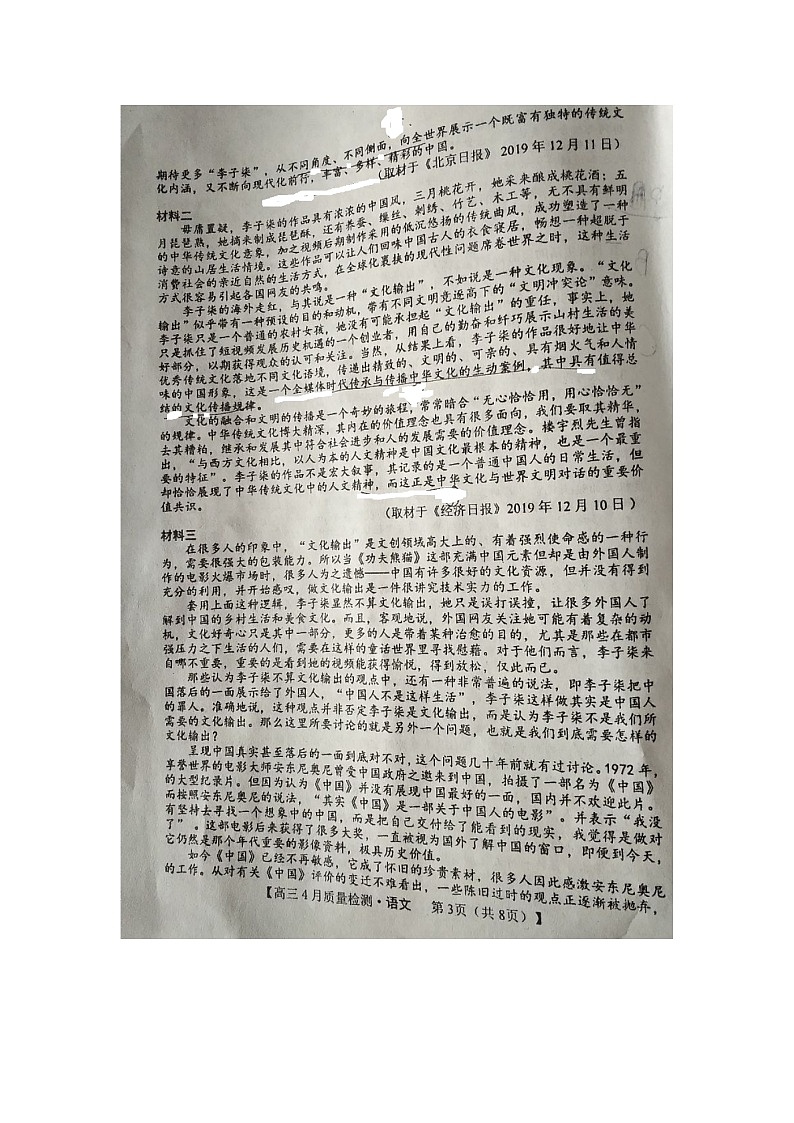 期待更多“李子柒”，从不同角度、不同侧面，向全世界展示一个既富有独特的传统文
化内涵，又不断向现代化前行，丰富、多样、精彩的中国。
（取材于《北京日报》2019年12月11日）
材料二
毋庸置疑，李子柒的作品具有浓浓的中国风，三月桃花开，她采来酿成桃花酒；五
月琵琶熟，她摘来制成琵琶酥，还有养蚕、缫丝、刺绣、竹艺、木工等，无不具有鲜明
的中华传统文化意象，加之视频后期制作采用的低沉悠扬的传统曲风，成功塑造了一种
诗意的山居生活情境。这些作品可以让人们回味中国古人的衣食寝居，畅想一种超脱于
消费社会的亲近自然的生活方式，在全球化裹挟的现代性问题席卷世界之时，这种生活
方式很容易引起各国网友的共鸣。
李子柒的海外走红，与其说是一种“文化输出”，不如说是一种文化现象。“文化
输出”似乎带有一种预设的目的和动机，带有不同文明竞逐高下的“文明冲突论”意味。
李子柒只是一个普通的农村女孩，她没有可能承担起“文化输出”的重任，事实上，她
只是抓住了短视频发展历史机遇的一个创业者，用自己的勤奋和纤巧展示山村生活的美
好部分，以期获得观众的认可和关注。当然，从结果上看，李子柒的作品很好地让中华
优秀传统文化落地不同文化语境，传递出精致的、文明的、可亲的、具有烟火气和人情
味的中国形象，这是一个全媒体时代传承与传播中华文化的生动案例，其中具有值得总
结的文化传播规律。
文化的融合和文明的传播是一个奇妙的旅程，常常暗合“无心恰恰用，用心恰恰无”
的规律。中华传统文化博大精深，其内在的价值理念也具有很多面向，我们要取其精华，
去其糟粕，继承和发展其中符合社会进步和人的发展需要的价值理念。楼宇烈先生曾指
出，“与西方文化相比，以人为本的人文精神是中国文化最根本的精神，也是一个最重
要的特征”。李子柒的作品不是宏大叙事，其记录的是一个普通中国人的日常生活，但
却恰恰展现了中华传统文化中的人文精神，而这正是中华文化与世界文明对话的重要价
值共识。
（取材于《经济日报》2019年12月10日）
材料三
在很多人的印象中，“文化输出”是文创领域高大上的、有着强烈使命感的一种行
为，需要很强大的包装能力。所以当《功夫熊猫》这部充满中国元素但却是由外国人制
作的电影火爆市场时，很多人为之遗憾——中国有许多很好的文化资源，但并没有得到
充分的利用，并开始感叹，做文化输出是一件很讲究技术实力的工作。
套用上面这种逻辑，李子柒显然不算文化输出，她只是误打误撞，让很多外国人了
解到中国的乡村生活和美食文化。而且，客观地说，外国网友关注她可能有着复杂的动
机，文化好奇心只是其中一部分，更多的人是带着某种治愈的目的，尤其是那些在都市
强压力之下生活的人们，需要在这样的童话世界里寻找慰藉。对于他们而言，李子柒来
自哪不重要，重要的是看到她的视频能获得愉悦，得到放松，仅此而已。
那些认为李子柒不算文化输出的观点中，还有一种非常普遍的说法，即李子柒把中
国落后的一面展示给了外国人，“中国人不是这样生活”，李子柒这样做其实是中国人
的罪人。准确地说，这种观点并非否定李子柒是文化输出，而是认为李子柒不是我们所
需要的文化输出。那么这里所要讨论的就是另外一个问题，也就是我们到底需要怎样的
文化输出？
呈现中国真实甚至落后的一面到底对不对，这个问题几十年前就有过讨论。1972年，
享誉世界的电影大师安东尼奥尼曾受中国政府之邀来到中国，拍摄了一部名为《中国》
的大型纪录片。但因为认为《中国》并没有展现中国最好的一面，国内并不欢迎此片。
而按照安东尼奥尼的说法，“其实《中国》是一部关于中国人的电影”。并表示“我没
有坚持去寻找一个想象中的中国，而是把自己交付给了能看到的现实，我觉得是做对
了”。这部电影后来获得了很多大奖，一直被视为国外了解中国的窗口，即便到今天，
它仍然是那个年代重要的影像资料，极具历史价值。
如今《中国》已经不再敏感，它成了怀旧的珍贵素材，很多人因此感激安东尼奥尼
的工作。从对有关《中国》评价的变迁不难看出，一些陈旧过时的观点正逐渐被抛弃，
【高三4月质量检测·语文 第3页（共8页）】